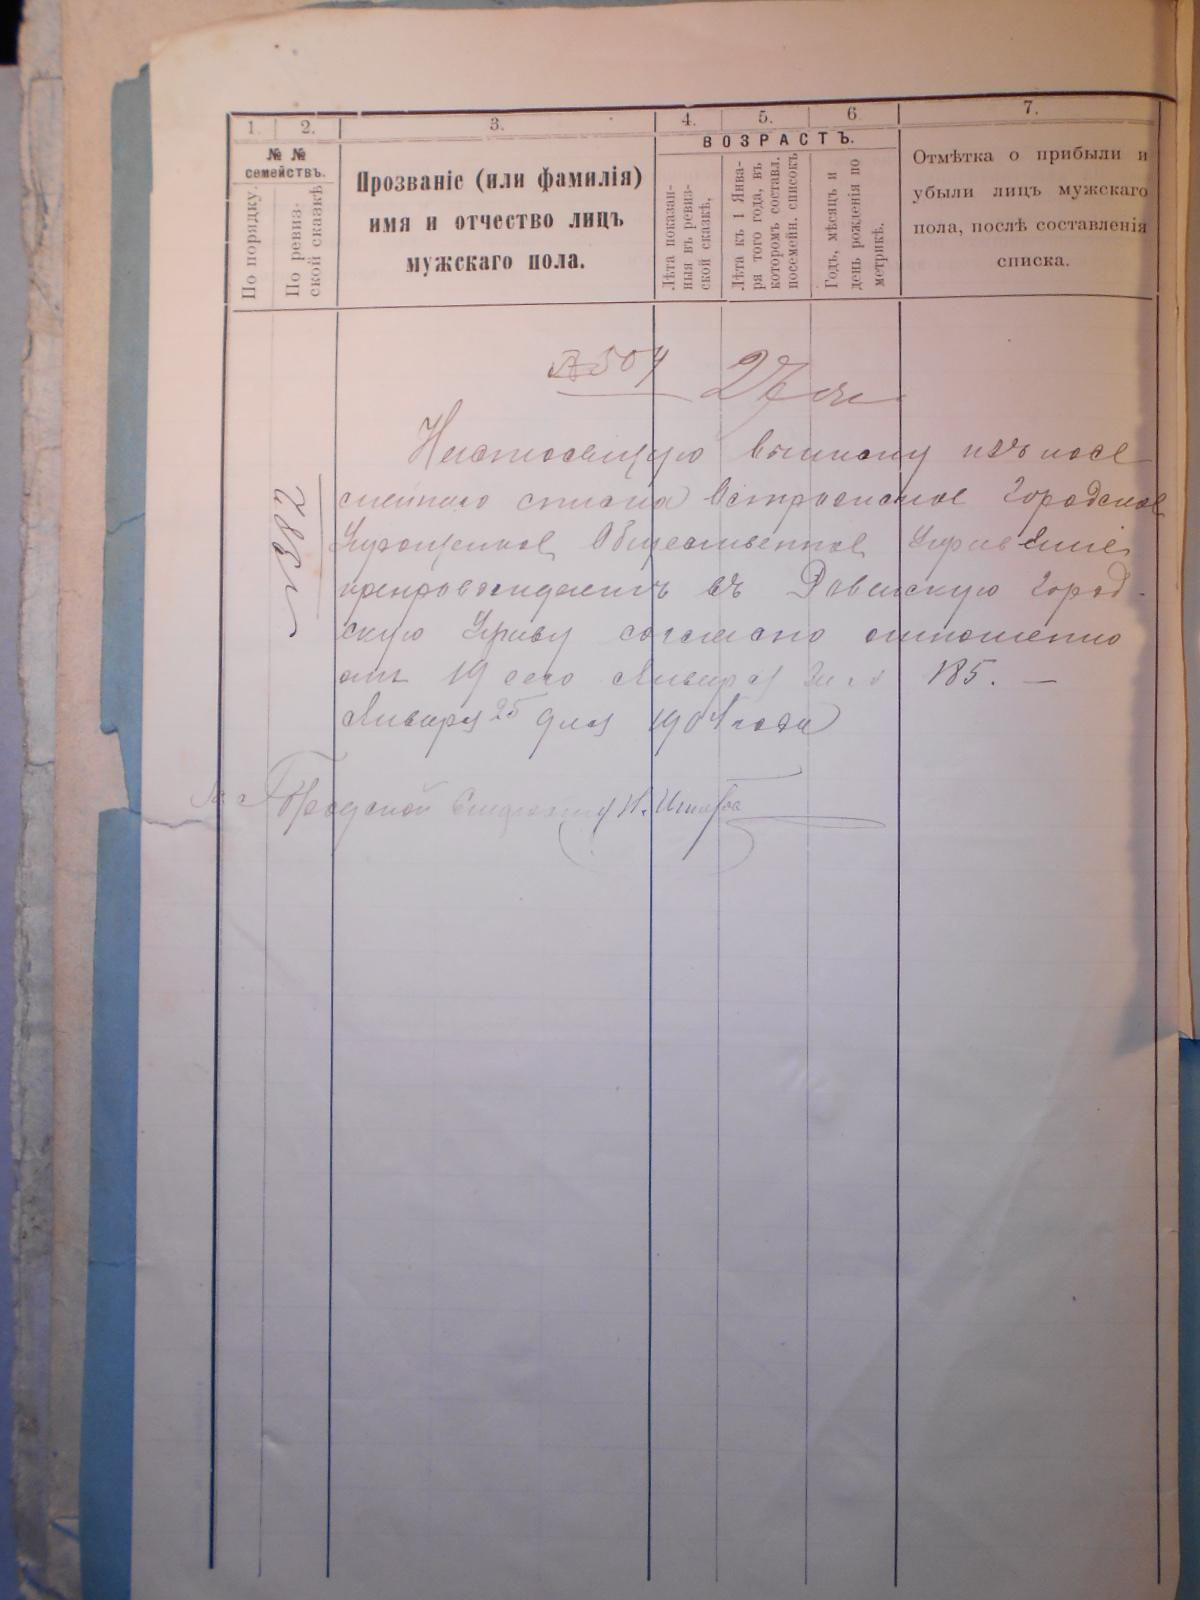 1. 2. 3. 4. 5. 6. 7.
№ № семействъ.
По порядку.
По ревиз-
ской сказкѣ
Прозваніе (или фамилія)
имя и отчество лицъ
мужскаго пола.
ВОЗРАСТЪ.
Лѣта показан-
ныя въ ревиз-
ской сказкѣ.
Лѣта къ 1 Янва-
ря того года, въ
которомъ составл.
посемейн. списокъ
Годъ, мѣсяцъ и
день рожденія по
метрикѣ.
Отмѣтка о прибыли и
убыли лицъ мужскаго
пола, послѣ составленія
списка.
Настоящую выписку изъ посе
мейнаго списка Острожское Городское
Упрощенное Общественное Управленіе
препровождаетъ въ Ровенскую Город-
скую Управу согласно отношенію
отъ 19 сего Января за № 185. —
Января 25 дня 1904 года
№ 283
Городской Староста И.